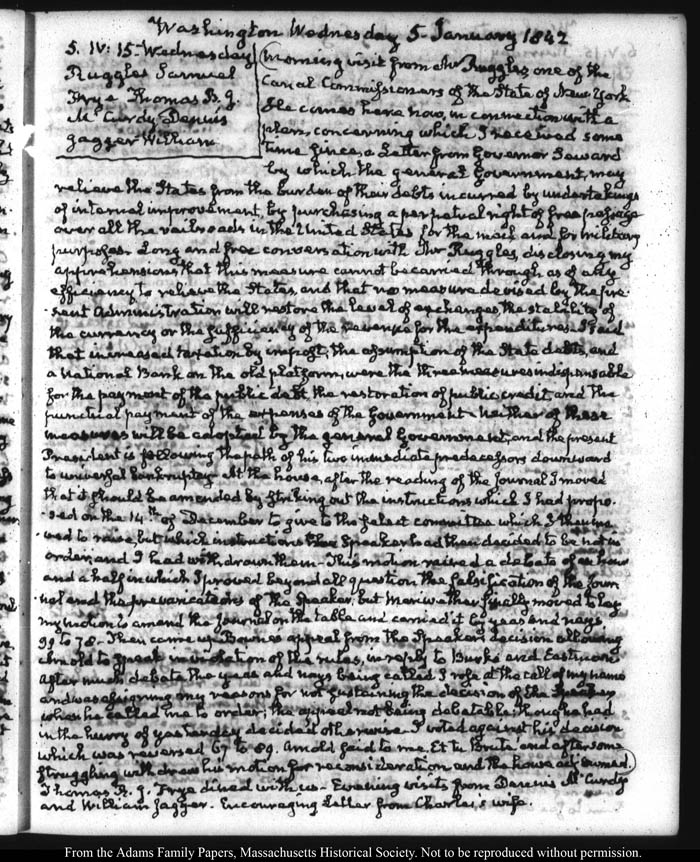 Washington Wednesday 5. January 1842
5. IV: 15. Wednesday
Ruggles Samuel
Frye Thomas B. J.
McCurdy Dennis
Jagger William
Morning visit from Mr Ruggles, one of the
Canal Commissioners of the State of New York
He comes here now, in connection with a
plan, concerning which I received some
time since, a Letter from Governor Seward
by which the general Government, may
relieve the States from the burden of their debts incurred by undertakings
of internal improvement, by purchasing a perpetual right of free passage
over all the railroads in the United States for the mail and for military
purposes. Long and free conversation with Mr Ruggles, disclosing my
apprehensions that this measure cannot be carried through, as of any
efficiency to relieve the States, and that no measure devised by the pre-
sent Administration will restore the level of exchanges, the stability of
the currency or the sufficiency of the revenue for the expenditures. I said
that increased taxation by impost, the assumption of the State debts, and
a National Bank on the old platform, were the three measures indispensable
for the payment of the public debt, the restoration of public credit, and the
punctual payment of the expenses of the Government. Neither of these
measures will be adopted by the general Government, and the present
President is following the path of his two immediate predecessors downward
to universal bankruptcy. At the house, after the reading of the Journal I moved
that it should be amended by striking out the instructions which I had propo-
sed on the 14th of December to give to the select committee which I then mo-
ved to raise, but which instructions the Speaker had then decided to be not in
order, and I had withdrawn them. This motion raised a debate of an hour
and a half in which I proved beyond all question the falsification of the Jour-
nal and the prevarications of the Speaker, but Meriwether finally moved to lay
my motion to amend the Journal on the table and carried it by yeas and nays
99 to 78. Then came up Bowne's appeal from the Speaker's decision allowing
Arnold to speak in violation of the rules, in reply to Burke and Eastman
After much debate the yeas and nays being called I rose at the call of my name
and was assigning my reasons for not sustaining the decision of the Speaker
when he called me to order; the appeal not being debatable; though he had
in the hurry of yesterday decided otherwise. I voted against his decision
which was reversed 67 to 89. Arnold said to me. Et tu Brute and after some
struggling withdrew his motion for reconsideration and the house adjourned.
Thomas B. J. Frye dined with us. Evening visits from Dennis McCurdy
and William Jagger. Encouraging Letter from Charles's wife.
From the Adams Family Papers, Massachusetts Historical Society. Not to be reproduced without permission.